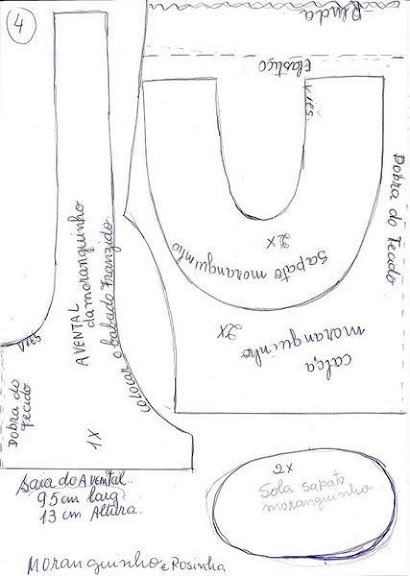 4
Renda
Elastico
viés.
Dobra do Tecido
2X
Sapato moranguinho
2X
calça
moranguinho
AVENTAL
da moranguinho
colocar o babado Franzido
viés
Dobra do
Tecido
1X
Saia do Avental.
95 cm larg
13 cm Altura.
2X
Sola Sapato
moranguinho.
Moranguinho e Rosinha